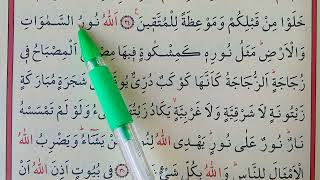 خَلَوْا مِنْ قَبْلِكُمْ وَمَوْعِظَةً لِلْمُتَّقِينَ ﴿٣٤﴾ اَللّٰهُ نُورُ السَّمٰوَاتِ
وَالْاَرْضِ مَثَلُ نُورِهٖ كَمِشْكٰوةٍ فِيهَا مِصْبَاحٌ اَلْمِصْبَاحُ فٖى
زُجَاجَةٍ اَلزُّجَاجَةُ كَاَنَّهَا كَوْكَبٌ دُرِّىٌّ يُوقَدُ مِنْ شَجَرَةٍ مُبَارَكَةٍ
زَيْتُونَةٍ لَا شَرْقِيَّةٍ وَلَا غَرْبِيَّةٍ يَكَادُ زَيْتُهَا يُضٖٓىءُ وَلَوْ لَمْ تَمْسَسْهُ
نَارٌ نُورٌ عَلٰى نُورٍ يَهْدِى اللّٰهُ لِنُورِهٖ مَنْ يَشَٓاءُ وَيَضْرِبُ اللّٰهُ
الْاَمْثَالَ لِلنَّاسِ وَاللّٰهُ بِكُلِّ شَىْءٍ ﴿٣٥﴾ فٖى بُيُوتٍ اَذِنَ اللّٰهُ اَنْ